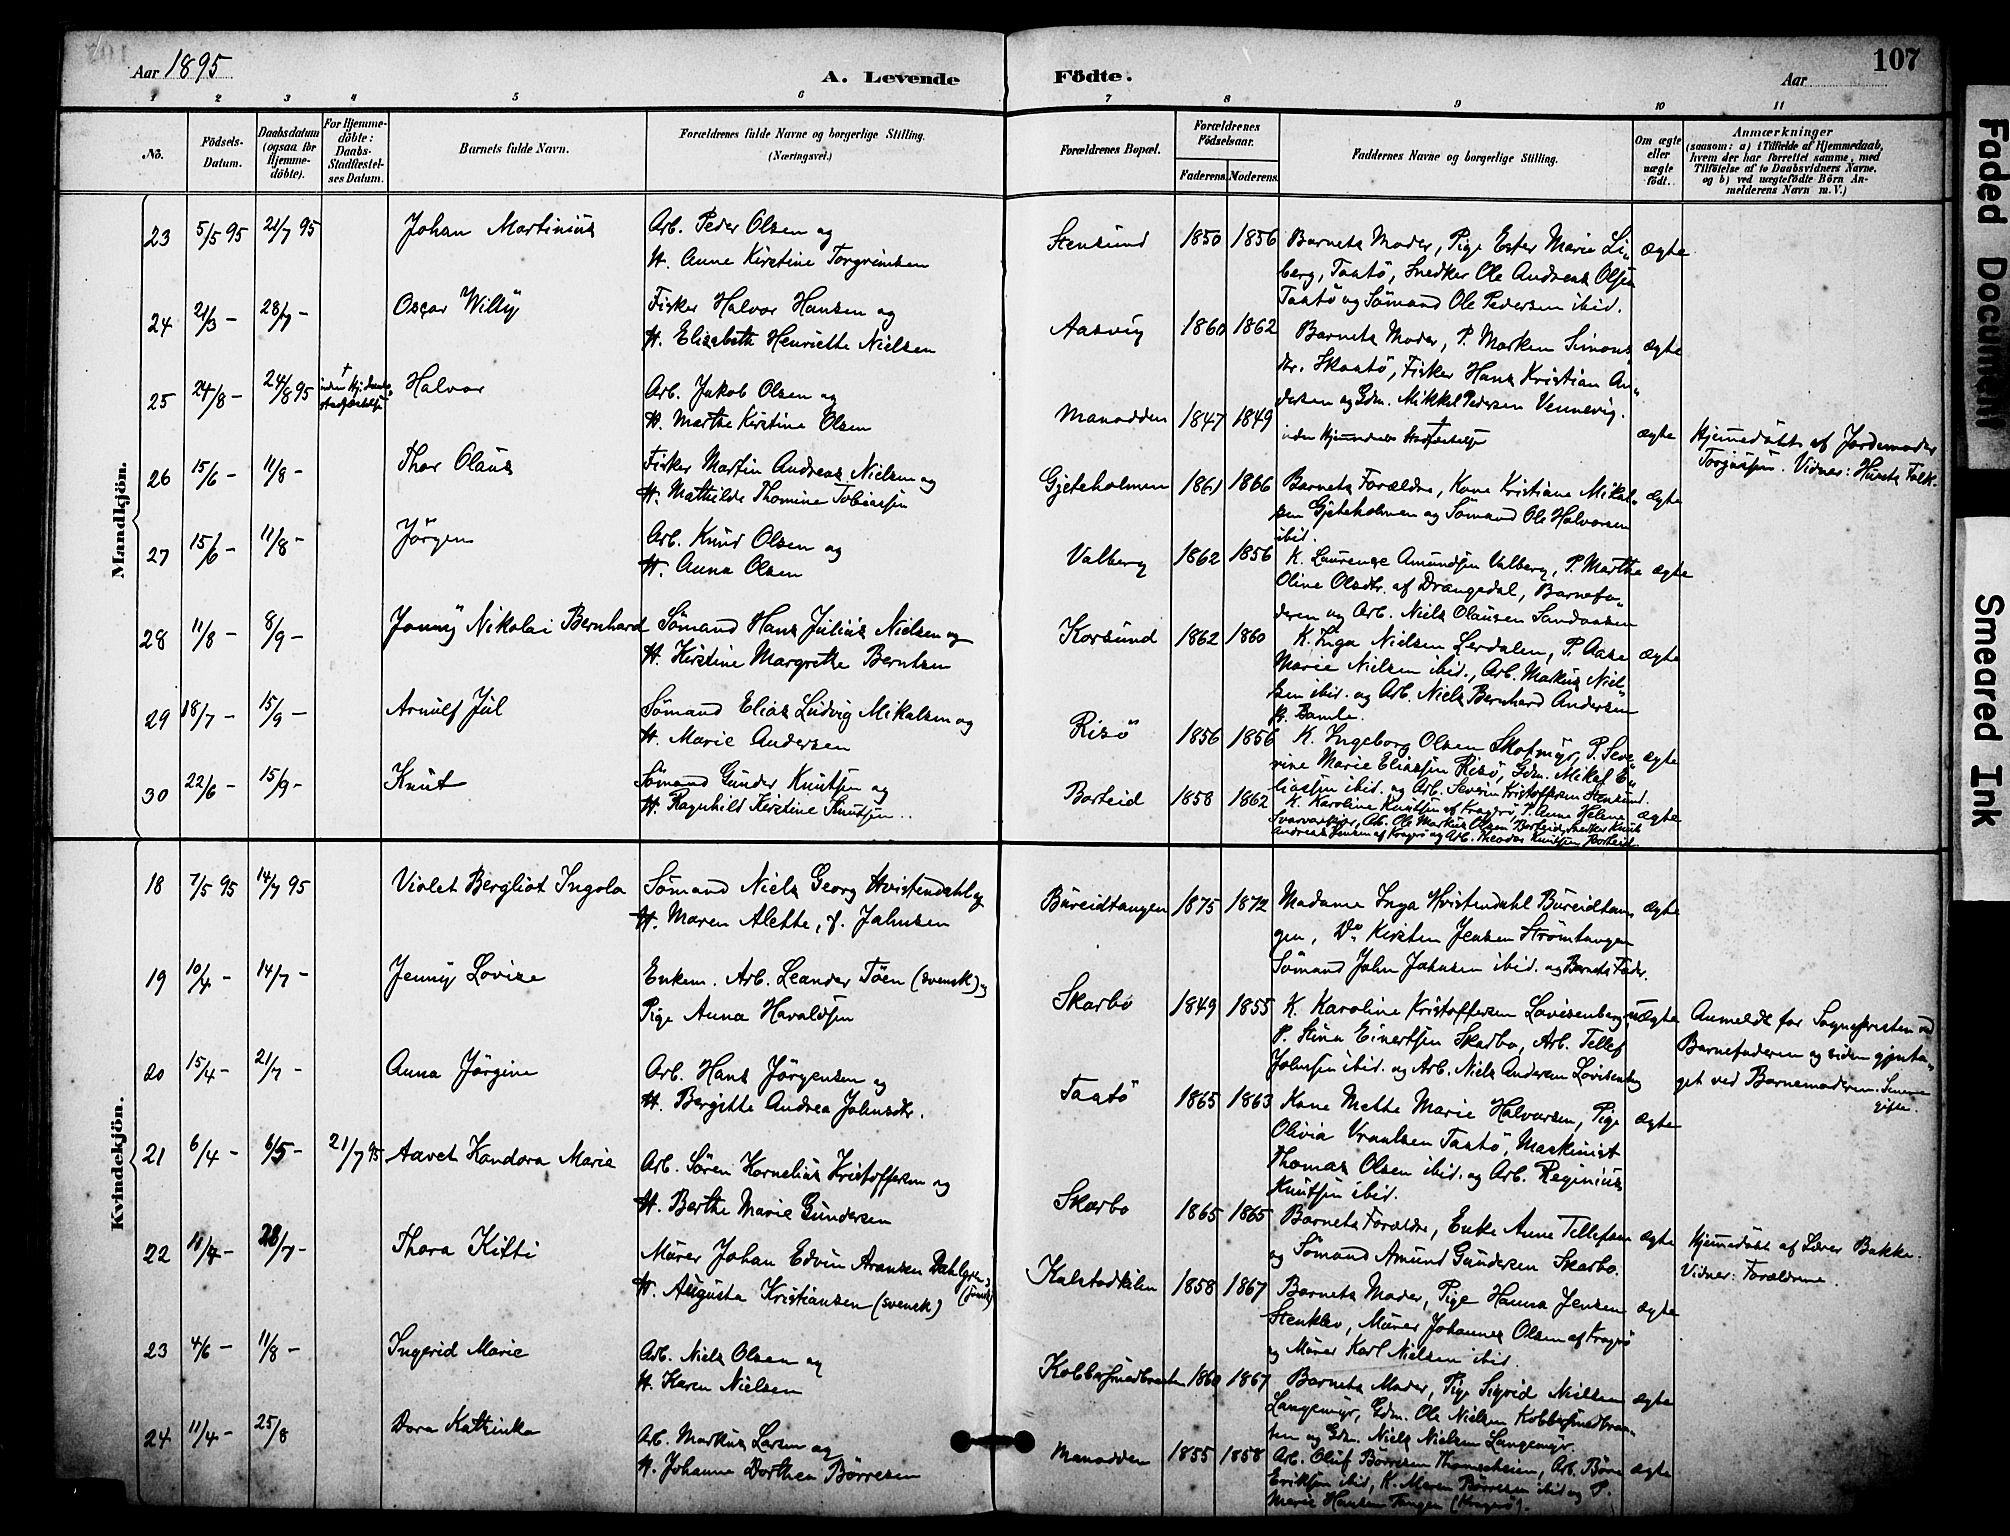 Aar 1895
A. Levende
Födte.
Aar
107
1 2 3 4 5 6 7 8 9 10 11
No.
Födsels-Datum.
Daabsdatum (ogsaa for Hjemme-döbte).
For Hjemme-döbte: Daabs-Stadfæstel-ses Datum.
Barnets fulde Navn.
Forældrenes fulde Navne og borgerlige Stilling.
(Næringsvei.)
Forældrenes Bopæl.
Forældrenes Födselsaar.
Faderens. Moderens.
Faddernes Navne og borgerlige Stilling.
Om ægte eller uægte födt.
Anmærkninger
(saasom: a) i Tilfælde af Hjemmedaab,
hvem der har forrettet samme, med
Tilföielse af to Daabsvidners Navne.
og b) ved uægtefödte Börn An-
melderens Navn m. V.)
Mandkjön.
23 5/5 95 21/7 95 Johan Martinius
Arb. Peder Olsen og
H. Anne Kirstine Torgrimsen
Stensund 1850 1856
Barnets Moder, Pige Ester Marie Li„
berg, Taatö, Snedker Ole Andreas Olsen
Taatö og Sömand Ole Pedersen ibid.
ægte
24 21/3 – 28/7 – Oscar Willy
Fisker Halvor Hansen og
H. Elisabeth Henriette Nielsen
Aasvig 1860 1862
Barnets Moder, P. Marken Simons
dtr. Skaatö, Fisker Hans Kristian An„
dersen og Gdm. Mikkel Pedersen Vennevig.
ægte
25 24/8 – 24/8 95
† inden Hj. daabs stadfæstelse
Halvor
Arb. Jakob Olsen og
H. Marthe Kirstine Olsen
Manodden 1847 1849
† inden Hjemmedaabs Stadfæstelse
ægte
Hjemmedöbt af Jordemoder
Torjussen. Vidner: Husets Folk.
26 15/6 – 11/8 – Thor Olaus
Fisker Martin Andreas Nielsen og
H. Mathilde Thomine Tobiassen
Gjeteholmen 1861 1866
Barnets Forældre, Kone Kristiane Mikal„
sen Gjeteholmen og Sömand Ole Halvorsen
ibid.
ægte
27 15/6 – 11/8 – Jörgen
Arb. Knud Olsen og
H. Anna Olsen
Valberg 1862 1856
K. Laurense Amundsen Valberg, P. Marthe
Oline Olsdtr. af Drangedal, Barnefa„
deren og Arb. Niels Olausen Sandaasen
ægte
28 11/8 – 8/9 – Jonny Nikolai Bernhard
Sömand Hans Julius Nielsen og
H. Kirstine Margrethe Berntsen
Korsund 1862 1860
K. Inga Nielsen Lerdalen, P. Aase
Marie Nielsen ibid., Arb. Markus Niel„
sen ibid. og Arb. Niels Bernhard Andersen
fr. Bamle.
ægte
29 18/7 – 15/9 – Arnulf Jul
Sömand Elias Ludvig Mikalsen og
H. Marie Andersen
Risö 1856 1856
K. Ingeborg Olsen Skofmyr, P. Seve„
rine Marie Eliassen Risö, Gdm. Mikal E„
liassen ibid. og Arb. Severin Kristoffersen Stensund.
ægte
30 22/6 – 15/9 – Knut
Sömand Gunder Knutsen og
H. Ragnhild Kirstine Knutsen.
Borteid 1858 1862
K. Karoline Knutsen af Kragerö, P. Anne Helene
Arb. Ole Markus Olsen Borteid, Snedker Knut
Andreas Jensen af Kragerö og Arb. Theodor Knutsen Borteid.
ægte
Kvindekjön.
18 7/5 95 14/7 95 Violet Bergliot Ingola
Sömand Niels Georg Hvistendahl og
H. Maren Alette, f. Jahnsen
Büreidtangen 1875 1872
Madame Inga Hvistendahl Büreidtan„
gen, Do Kirsten Jensen Strömtangen
Sömand John Jahnsen ibid. og Barnets Fader.
ægte
19 10/4 – 14/7 – Jenny Lovise
Enkem. Arb. Leander Töen (svensk) og
Pige Anna Havaldsen
Skarbo 1849 1855
K. Karoline Kristoffersen Lovisenberg
P. Stina Einertsen Skarbo, Arb. Tellef
Johnsen ibid. og Arb. Niels Andersen Lovisenberg
uægte
Anmeldt for Sognepresten ved
Barnefaderen og siden gjenta„
get ved Barnemoderen. Senere
gifte.
20 15/4 – 21/7 – Anna Jörgine
Arb. Hans Jörgensen og
H. Bergitte Andrea Johnsdtr.
Taatö 1865 1863
Kone Mette Marie Halvorsen, Pige
Olivia Vraalsen Taatö, Maskinist
Thomas Olsen ibid. og Arb. Reginius
Knutsen ibid.
ægte
21 6/4 – 6/5 – 21/7 95 Aavet Kandora Marie
Arb. Sören Kornelius Kristoffersen og
H. Berthe Marie Gundersen
Skarbo 1865 1865
Barnets Forældre, Enke Anne Tellefsen
og Sömand Amund Gundersen Skarbo.
ægte
Hjemmedöbt af Lærer Bakke.
Vidner: Forældrene.
22 11/4 – 28/7 – Thora Kitti
Murer Johan Edvin Aronsen Dahlgren
H. Augusta Kristiansen (svensk)
Kalstadkilen 1858 1867
Barnets Moder, Pige Hanna Jensen
Stenklev, Murer Johannes Olsen af Kragerö
og Murer Karl Nielsen ibid.
ægte
23 4/6 – 11/8 – Ingerid Marie
Arb. Niels Olsen og
H. Karen Nielsen
Kobbersmedbraaten 1860 1867
Barnets Moder, Pige Sigrid Nielsen
Langemyr, Gdm. Ole Nielsen Kobbersmedbraa„
ten og Gdm. Niels Nielsen Langemyr.
ægte
24 11/4 – 25/8 Dora Kathinka
Arb. Markus Larsen og
H. Johanne Dorthea Börresen
Manodden 1855 1858
Arb. Oluf Börresen Thomesheien, Arb. Börre
Eriksen ibid, K. Maren Börresen ibid og P.
Marie Hansen Tangen (Kragerö).
ægte
Faded Document
Smeared Ink